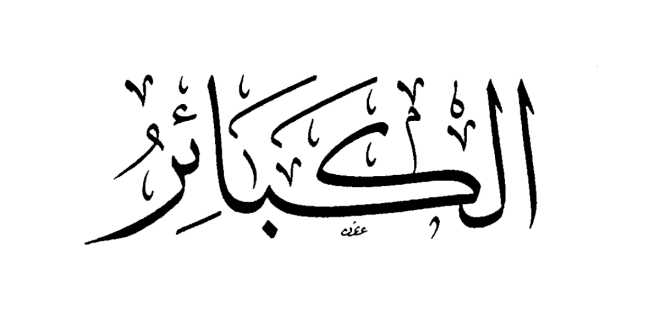 الْكَبَائِرُ